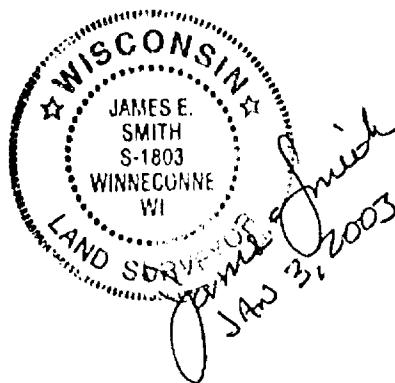 WISCONSIN
JAMES E.
SMITH
S-1803
WINNECONNE
WI
LAND SURVEYOR
James E Smith
JAN 3, 2003